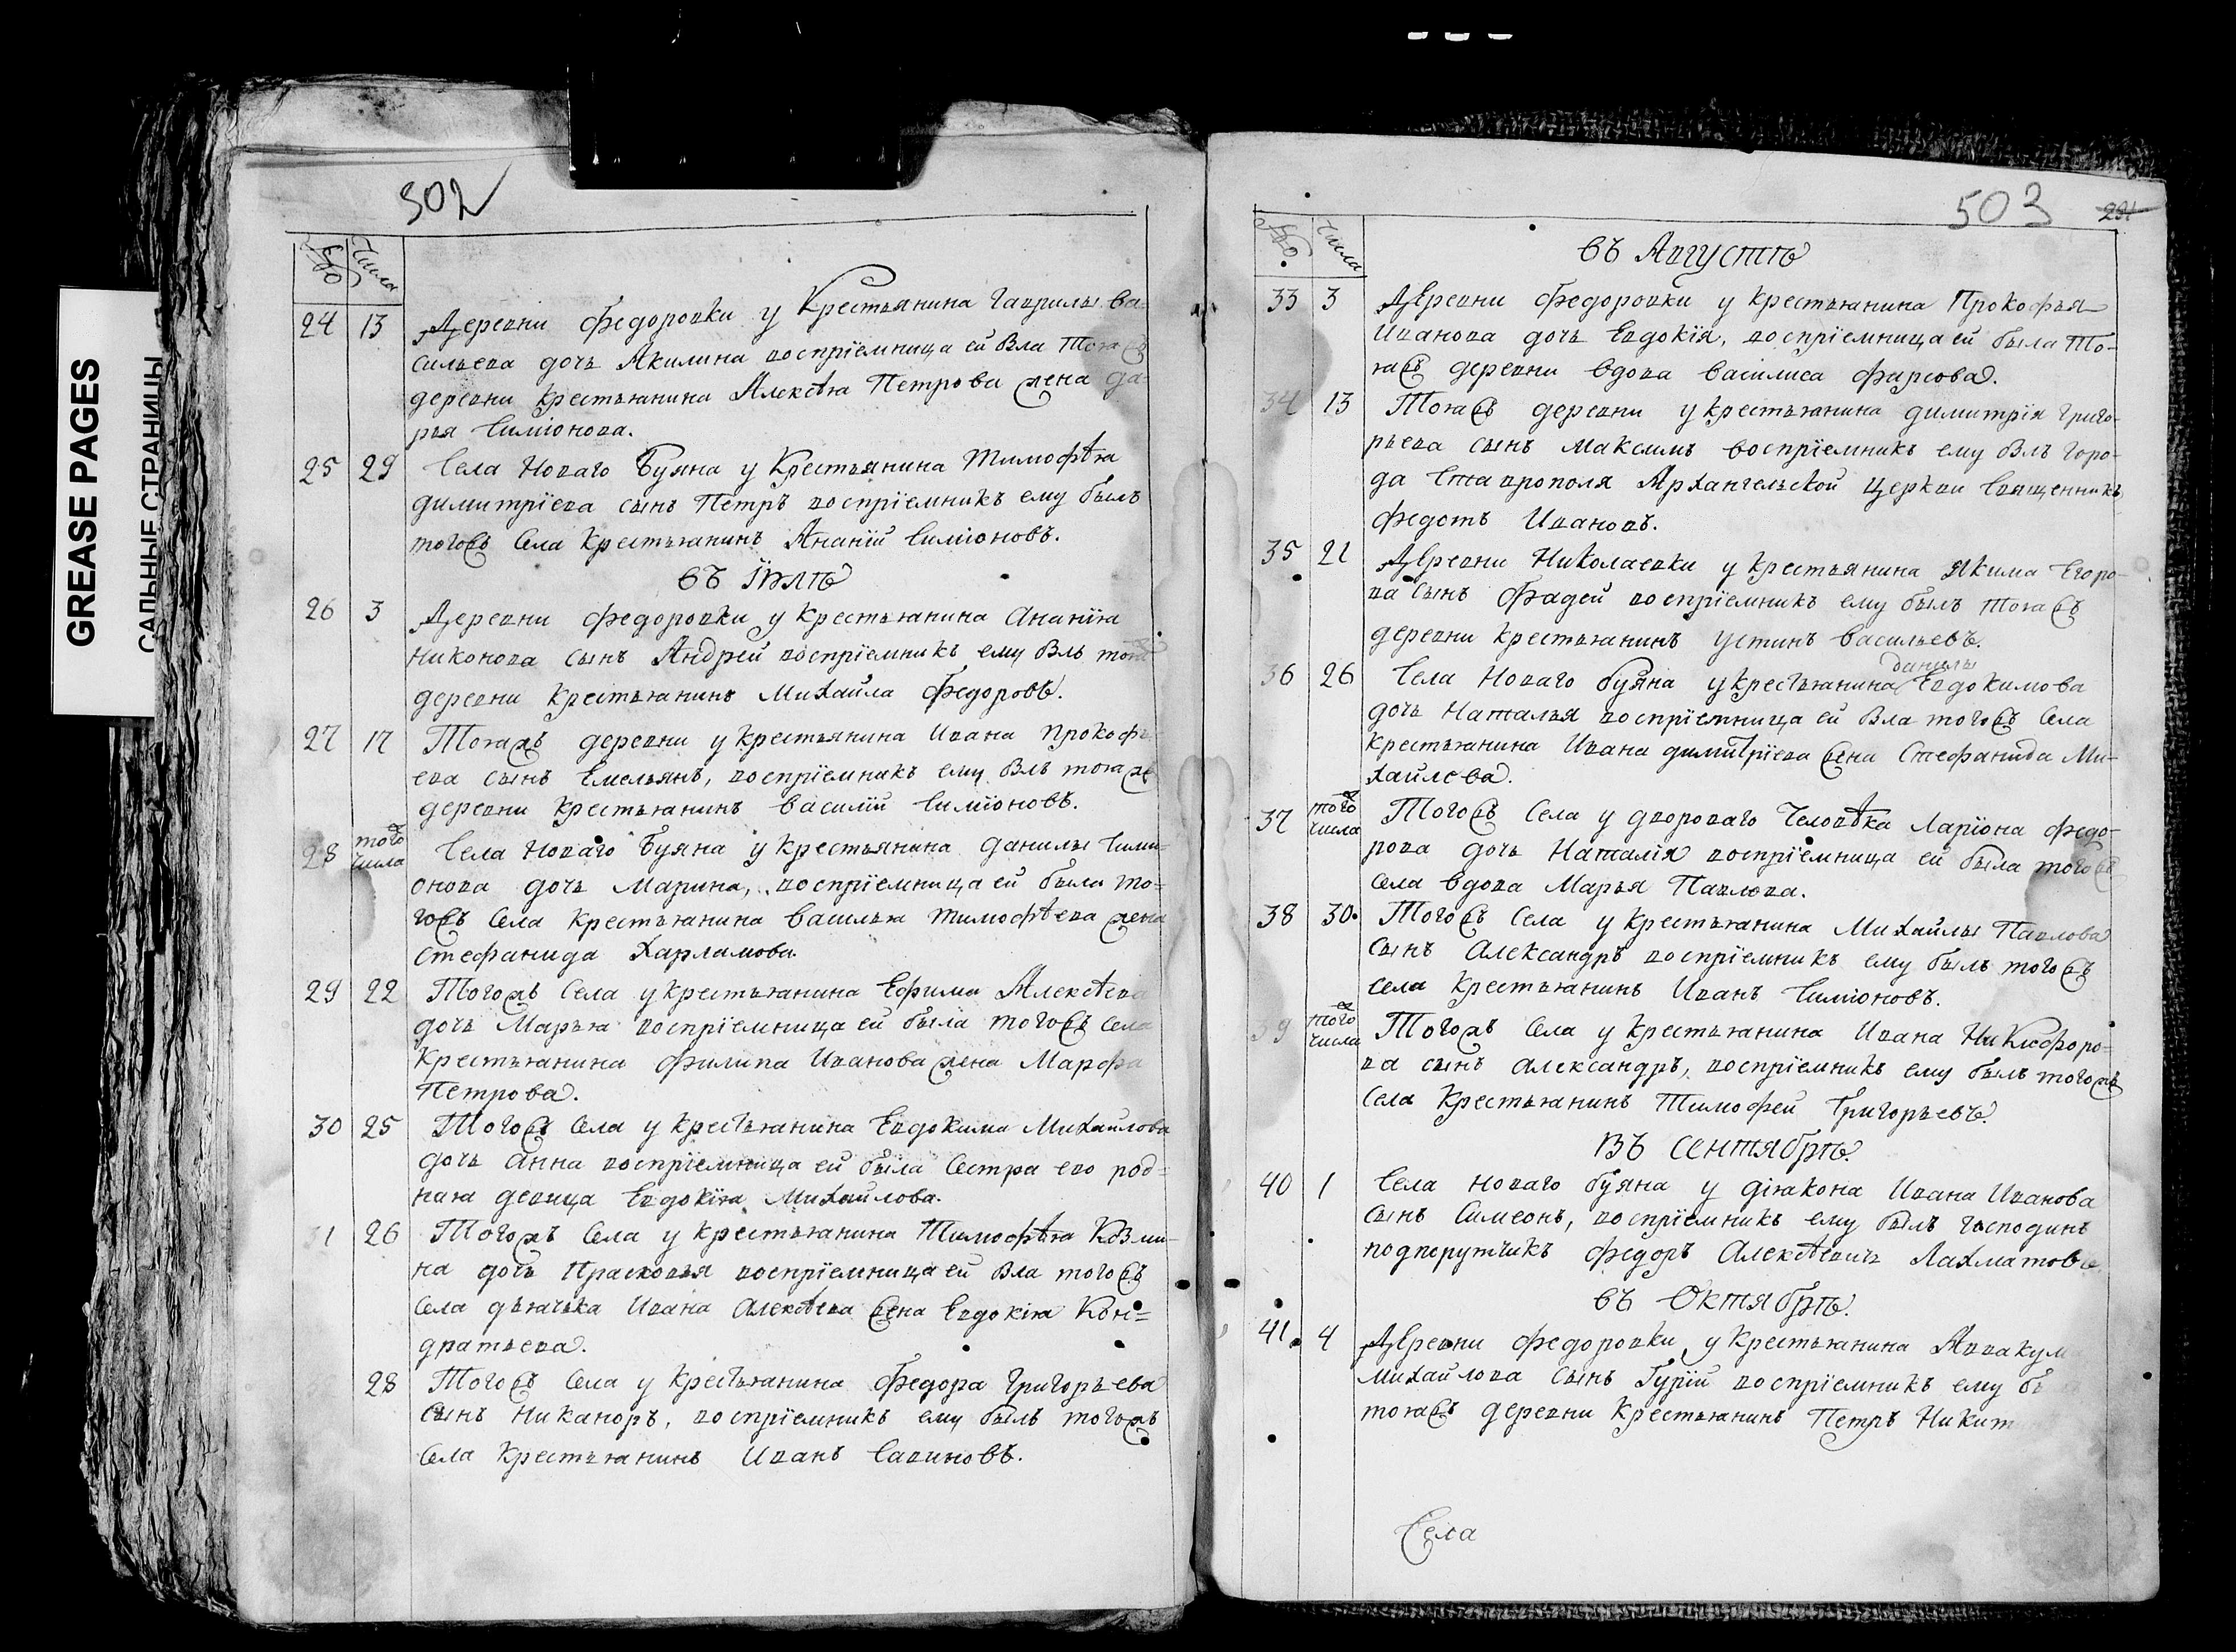 GREASE PAGES
САЛЬНЫЕ СТРАНИЦЫ
502
Числа
24 13 Деревни Федоровки у Крестьянина Гаврилы Ва
сильева дочь Акилина восприемница ей бла тояжъ
деревни крестьянина Алексѣя Петрова жена Да-
рья Симіонова.
25 29 Села Новаго Буяна у Крестьянина Тимофѣя
Димитріева сынъ Петръ воспріемникъ ему былъ
тогожъ Села крестьянинъ Ананій Симіоновъ.
въ Іюлѣ
26 3 Деревни Федоровки у крестьянина Ананія
Никонова сынъ Андрей воспріемникъ ему блъ тояжъ
деревни крестьянинъ Михайла Федоровъ.
27 17 Тояжъ деревни у крестьянина Ивана Прокофь
ева сынъ Емельянъ, воспріемникъ ему блъ тояже
деревни крестьянинъ Василій Симіоновъ.
28 тогож числа Села Новаго Буяна у крестьянина Данилы Сими-
онова дочь Марина, воспріемница ей была то-
гожъ Села крестьянина Василья Тимофѣева жена
Стефанида Харламова.
29 22 Тогожъ Села у крестьянина Ефима Алексѣева
дочь Марья воспріемница ей была тогожъ Села
крестьянина Филипа Иванова жена Марфа
Петрова.
30 25 Тогожъ Села у крестьянина Евдокима Михаилова
дочь Анна воспріемница ей была Сестра ево род-
ная девица Евдокія Михайлова.
31 26 Тогожъ Села у крестьянина Тимофѣя Козми-
на дочь Прасковья воспріемница ей бла тогожъ
Села дьячька Ивана Алексѣева жена Евдокія Кон-
дратьева.
28 Тогожъ Села у крестьянина Федора Григорьева
сынъ Никаноръ, воспріемникъ ему былъ тогожъ
Села крестьянинъ Иванъ Савиновъ.
503 291
Числа
въ Августѣ
33 3 Деревни Федоровки у крестьянина Прокофья
Иванова дочь Евдокія, воспріемница ей была То-
яжъ деревни вдова Василиса Фирсова.
34 13 Тояжъ деревни у крестьянина Димитрія Григо-
рьева сынъ Максимъ воспріемникъ ему блъ Горо-
да Ставрополя Архангельской Церкви Священникъ
Федотъ Ивановъ.
35 21 Деревни Николаевки у крестьянина Якима Егоро-
ва сынъ Фадей воспріемникъ ему былъ тояжъ
деревни крестьянинъ Устинъ Васильевъ.
Данилы
36 26 Села Новаго Буяна у крестьянина Евдокимова
дочь Наталья воспріемница ей бла тогожъ Села
крестьянина Ивана Димитріева жена Стефанида Ми-
хайлова.
37 тогож числа Тогожъ Села у двороваго Человѣка Ларіона Федо-
рова дочь Наталія воспріемница ей была тогожъ
Села вдова Марья Павлова.
38 30 Тогожъ Села у крестьянина Михайлы Павлова
сынъ Александръ воспріемникъ ему былъ тогожъ
села крестьянинъ Иванъ Симіоновъ.
39 тогож числа Тогожъ Села у крестьянина Ивана Никифоро-
ва сынъ Александръ, воспріемникъ ему былъ тогожъ
Села крестьянинъ Тимофей Григорьевъ.
въ Сентябрѣ.
40 1 Села Новаго Буяна у діякона Ивана Иванова
сынъ Симеонъ, воспріемникъ ему былъ господинъ
подпорутчикъ Федоръ Алексѣевичь Лахматовъ
въ Октябрѣ.
41 4 Деревни Федоровки у крестьянина Аввакум
Михайлова сынъ Гурій воспріемникъ ему бы
тояжъ деревни крестьянинъ Петръ Никит
Села